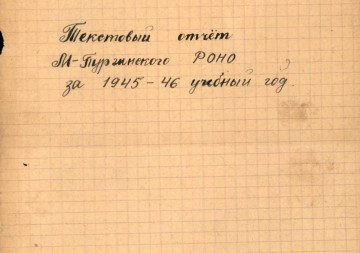 Текстовый отчёт
М-Пургинского РОНО
за 1945-46 учебный год